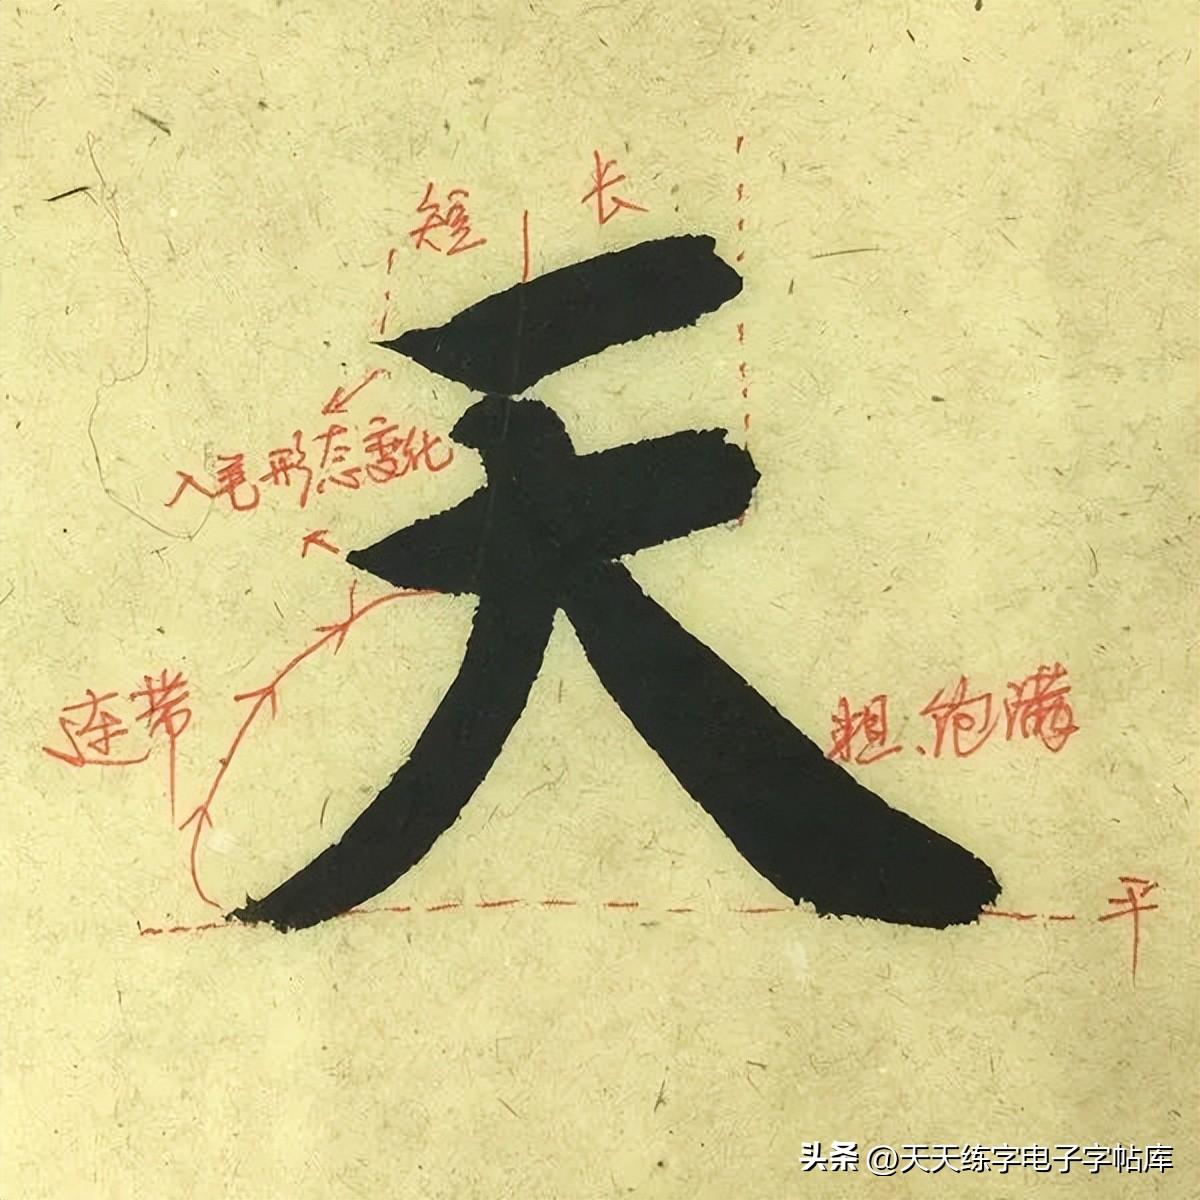 短 长
天
入笔形态变化
连带
粗、饱满
平
头条 @天天练字电子字帖库